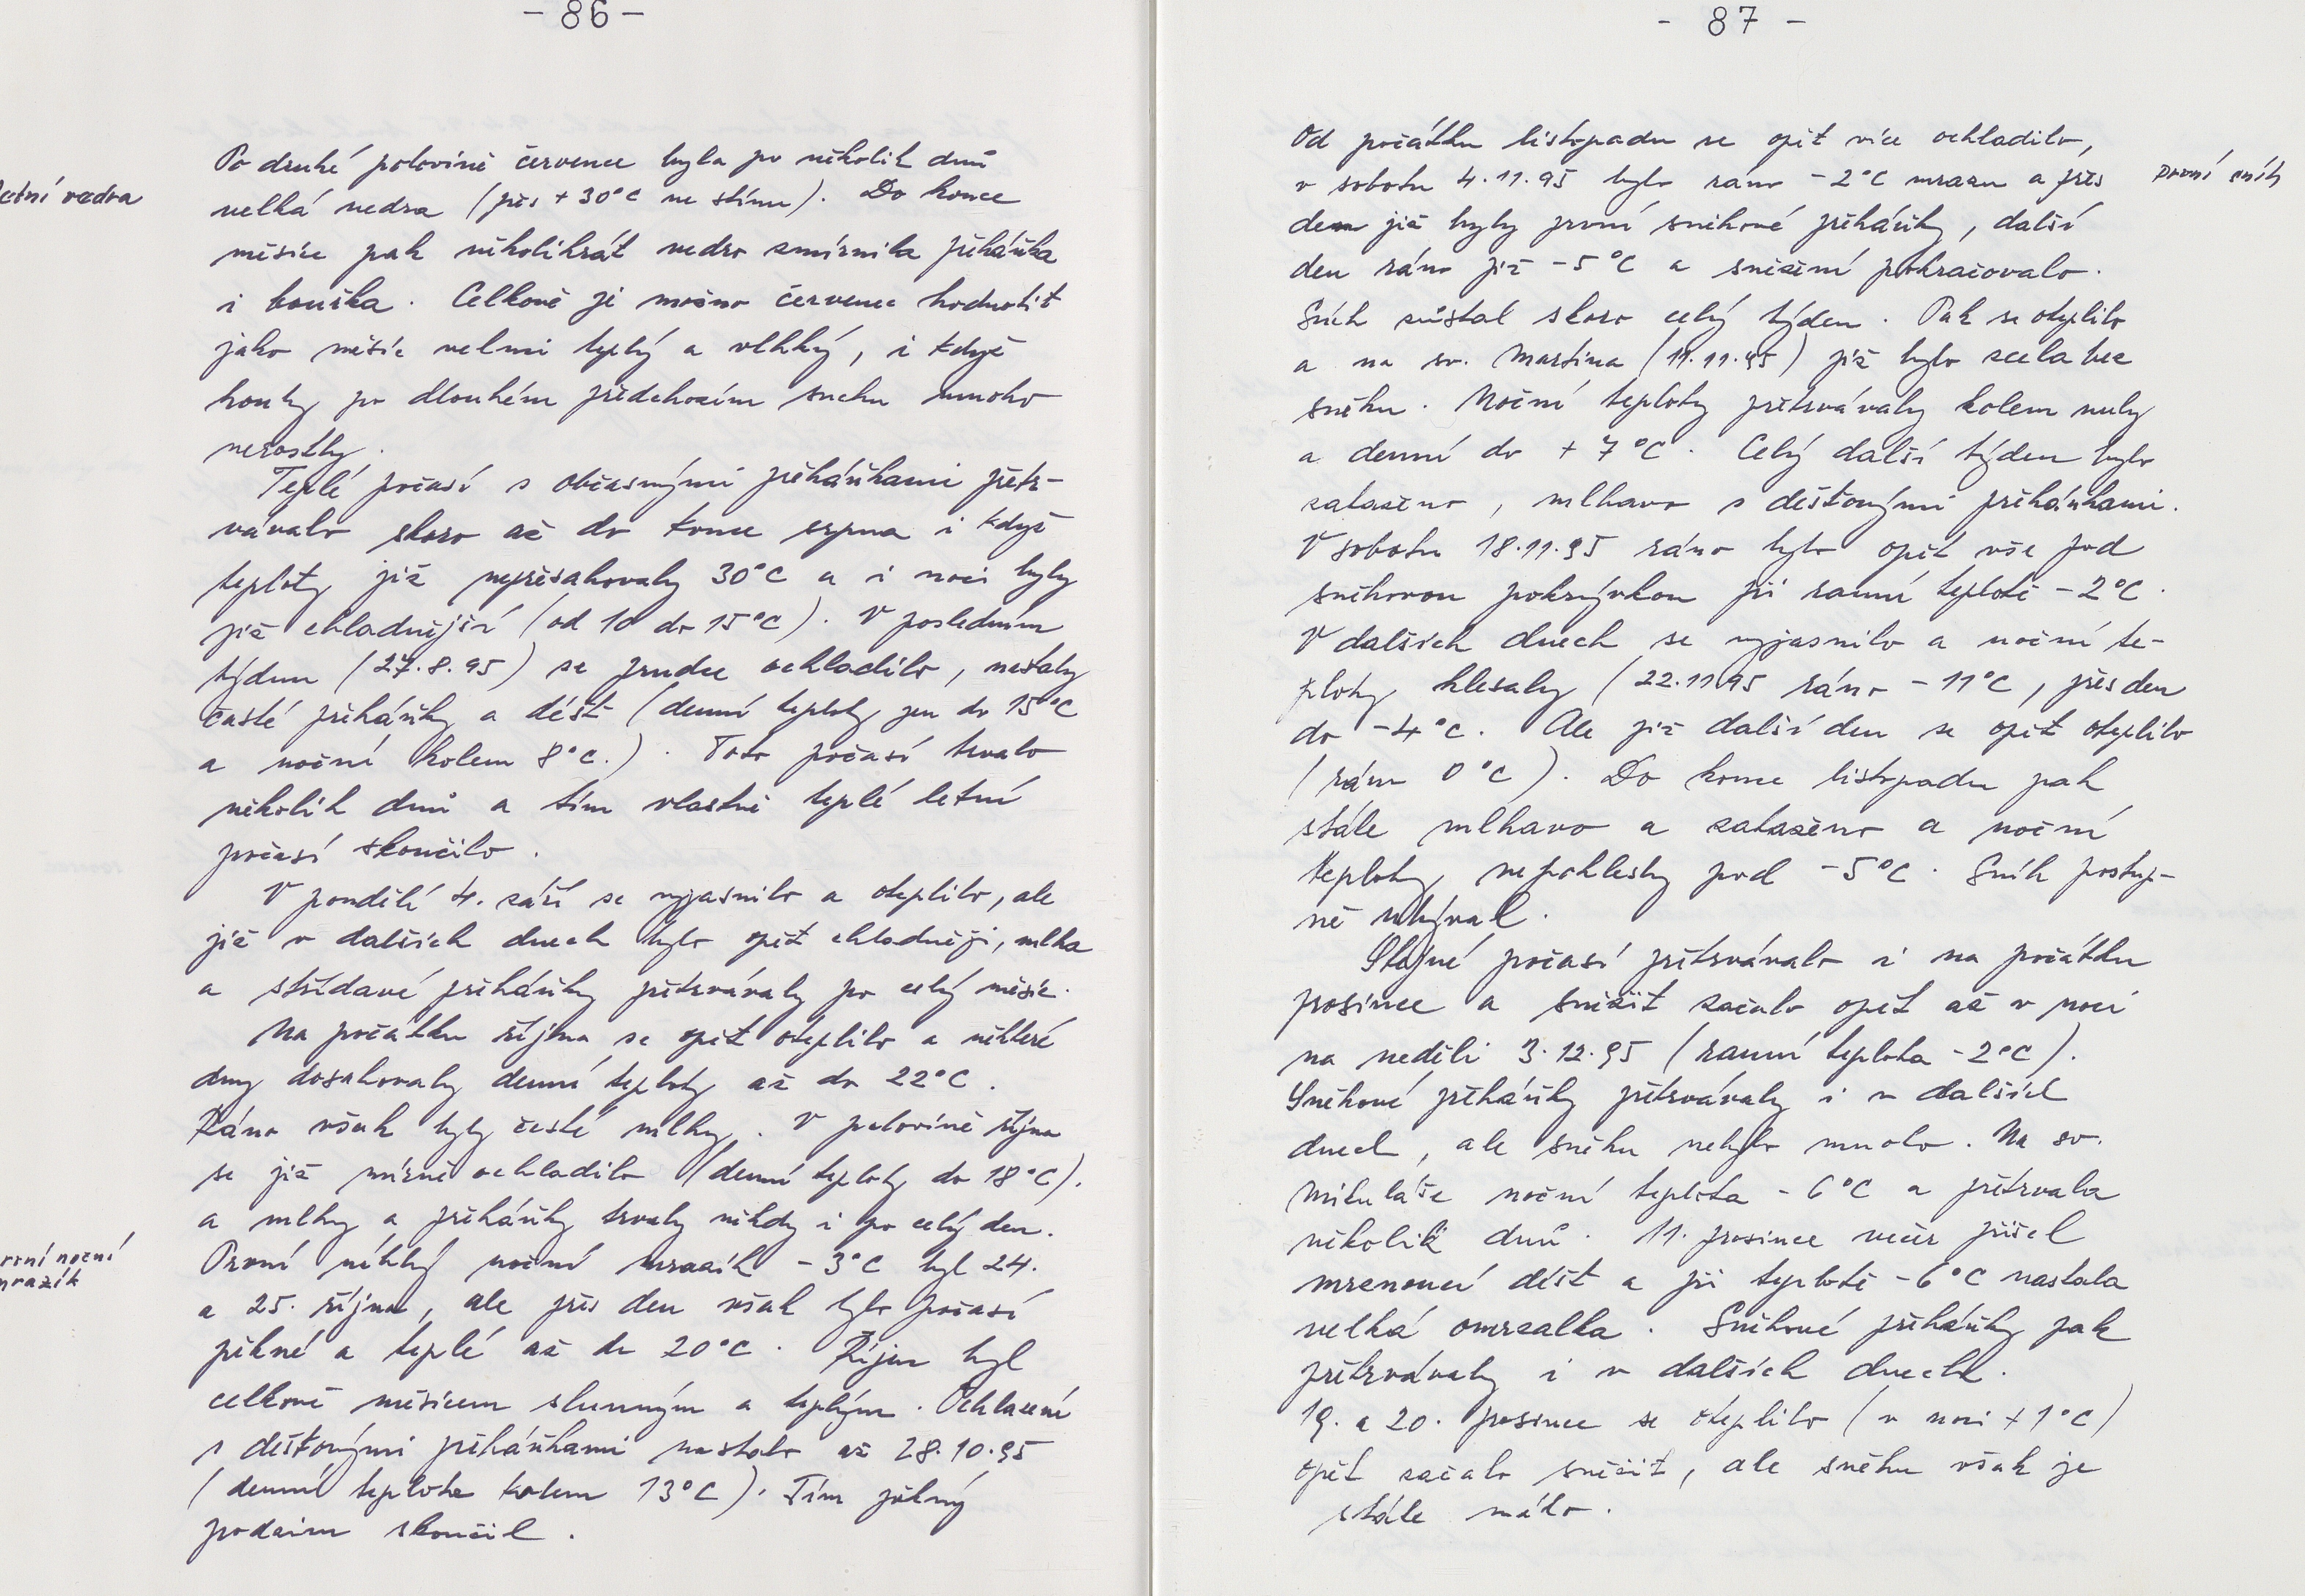 - 86 -
letní vedra
Po druhé polovině července byla po několik dnů
velká vedra (přes +30°C ve stínu). Do konce
měsíce pak několikrát vedro zmírnila přeháňka
i bouřka. Celkově je možno červenec hodnotit
jako měsíc velmi teplý a vlhký, i když
houby po dlouhém předchozím suchu mnoho
nerostly.
Teplé počasí s občasnými přeháňkami přetr-
vávalo skoro až do konce srpna i když
teploty již nepřesahovaly 30°C a i noci byly
již chladnější (od 10 do 15°C). V posledním
týdnu (27.8.95) se prudce ochladilo, nastaly
časté přeháňky a déšť (denní teploty jen do 15°C
a noční kolem 8°C.). Toto počasí trvalo
několik dnů a tím vlastně teplé letní
počasí skončilo.
V pondělí 4. září se vyjasnilo a oteplilo, ale
již v dalších dnech bylo opět chladněji, mlha
a střídavé přeháňky přetrvávaly po celý měsíc.
Na počátku října se opět oteplilo a některé
dny dosahovaly denní teploty až do 22°C.
Ráno však byly časté mlhy. V polovině října
se již mírně ochladilo (denní teploty do 18°C).
a mlhy a přeháňky trvaly někdy i po celý den.
první noční
mrazík
První něhký noční mrazík -3°C byl 24.
a 25. října, ale přes den však bylo počasí
pěkné a teplé až do 20°C. Říjen byl
celkově měsícem slunným a teplým. Ochlazení
s dešťovými přeháňkami nastalo až 28.10.95
(denní teplota kolem 13°C). Tím pěkný
podzim skončil.
- 87 -
Od počátku listopadu se opět více ochladilo,
v sobotu 4.11.95 bylo ráno -2°C mrazu a přes
první sníh
den již byly první sněhové přeháňky, další
den ráno již -5°C a sněžení pokračovalo.
Sníh zůstal skoro celý týden. Pak se oteplilo
a na sv. Martina (11.11.95) již bylo zcela bez
sněhu. Noční teploty přetrvávaly kolem nuly
a denní do +7°C. Celý další týden bylo
zataženo, mlhavo s dešťovými přeháňkami.
V sobotu 18.11.95 ráno bylo opět vše pod
sněhovou pokrývkou při ranní teplotě -2°C.
V dalších dnech se vyjasnilo a noční te-
ploty klesaly (22.11.95 ráno -11°C, přes den
do -4°C. Ale již další den se opět oteplilo
(ráno 0°C). Do konce listopadu pak
stále mlhavo a zataženo a noční
teploty nepoklesly pod -5°C. Sníh postup-
ně ubýval.
Stejné počasí přetrvávalo i na počátku
prosince a sněžit začalo opět až v noci
na neděli 3.12.95 (ranní teplota -2°C).
Sněhové přeháňky přetrvávaly i v dalších
dnech, ale sněhu nebylo mnoho. Na sv.
Mikuláše noční teplota -6°C a přetrvala
několik dnů. 11. prosince večer přišel
mrznoucí déšť a při teplotě -6°C nastala
velká omrzalka. Sněhové přeháňky pak
přetrvávaly i v dalších dnech.
19. a 20. prosince se oteplilo (v noci +1°C)
opět začalo sněžit, ale sněhu však je
stále málo.